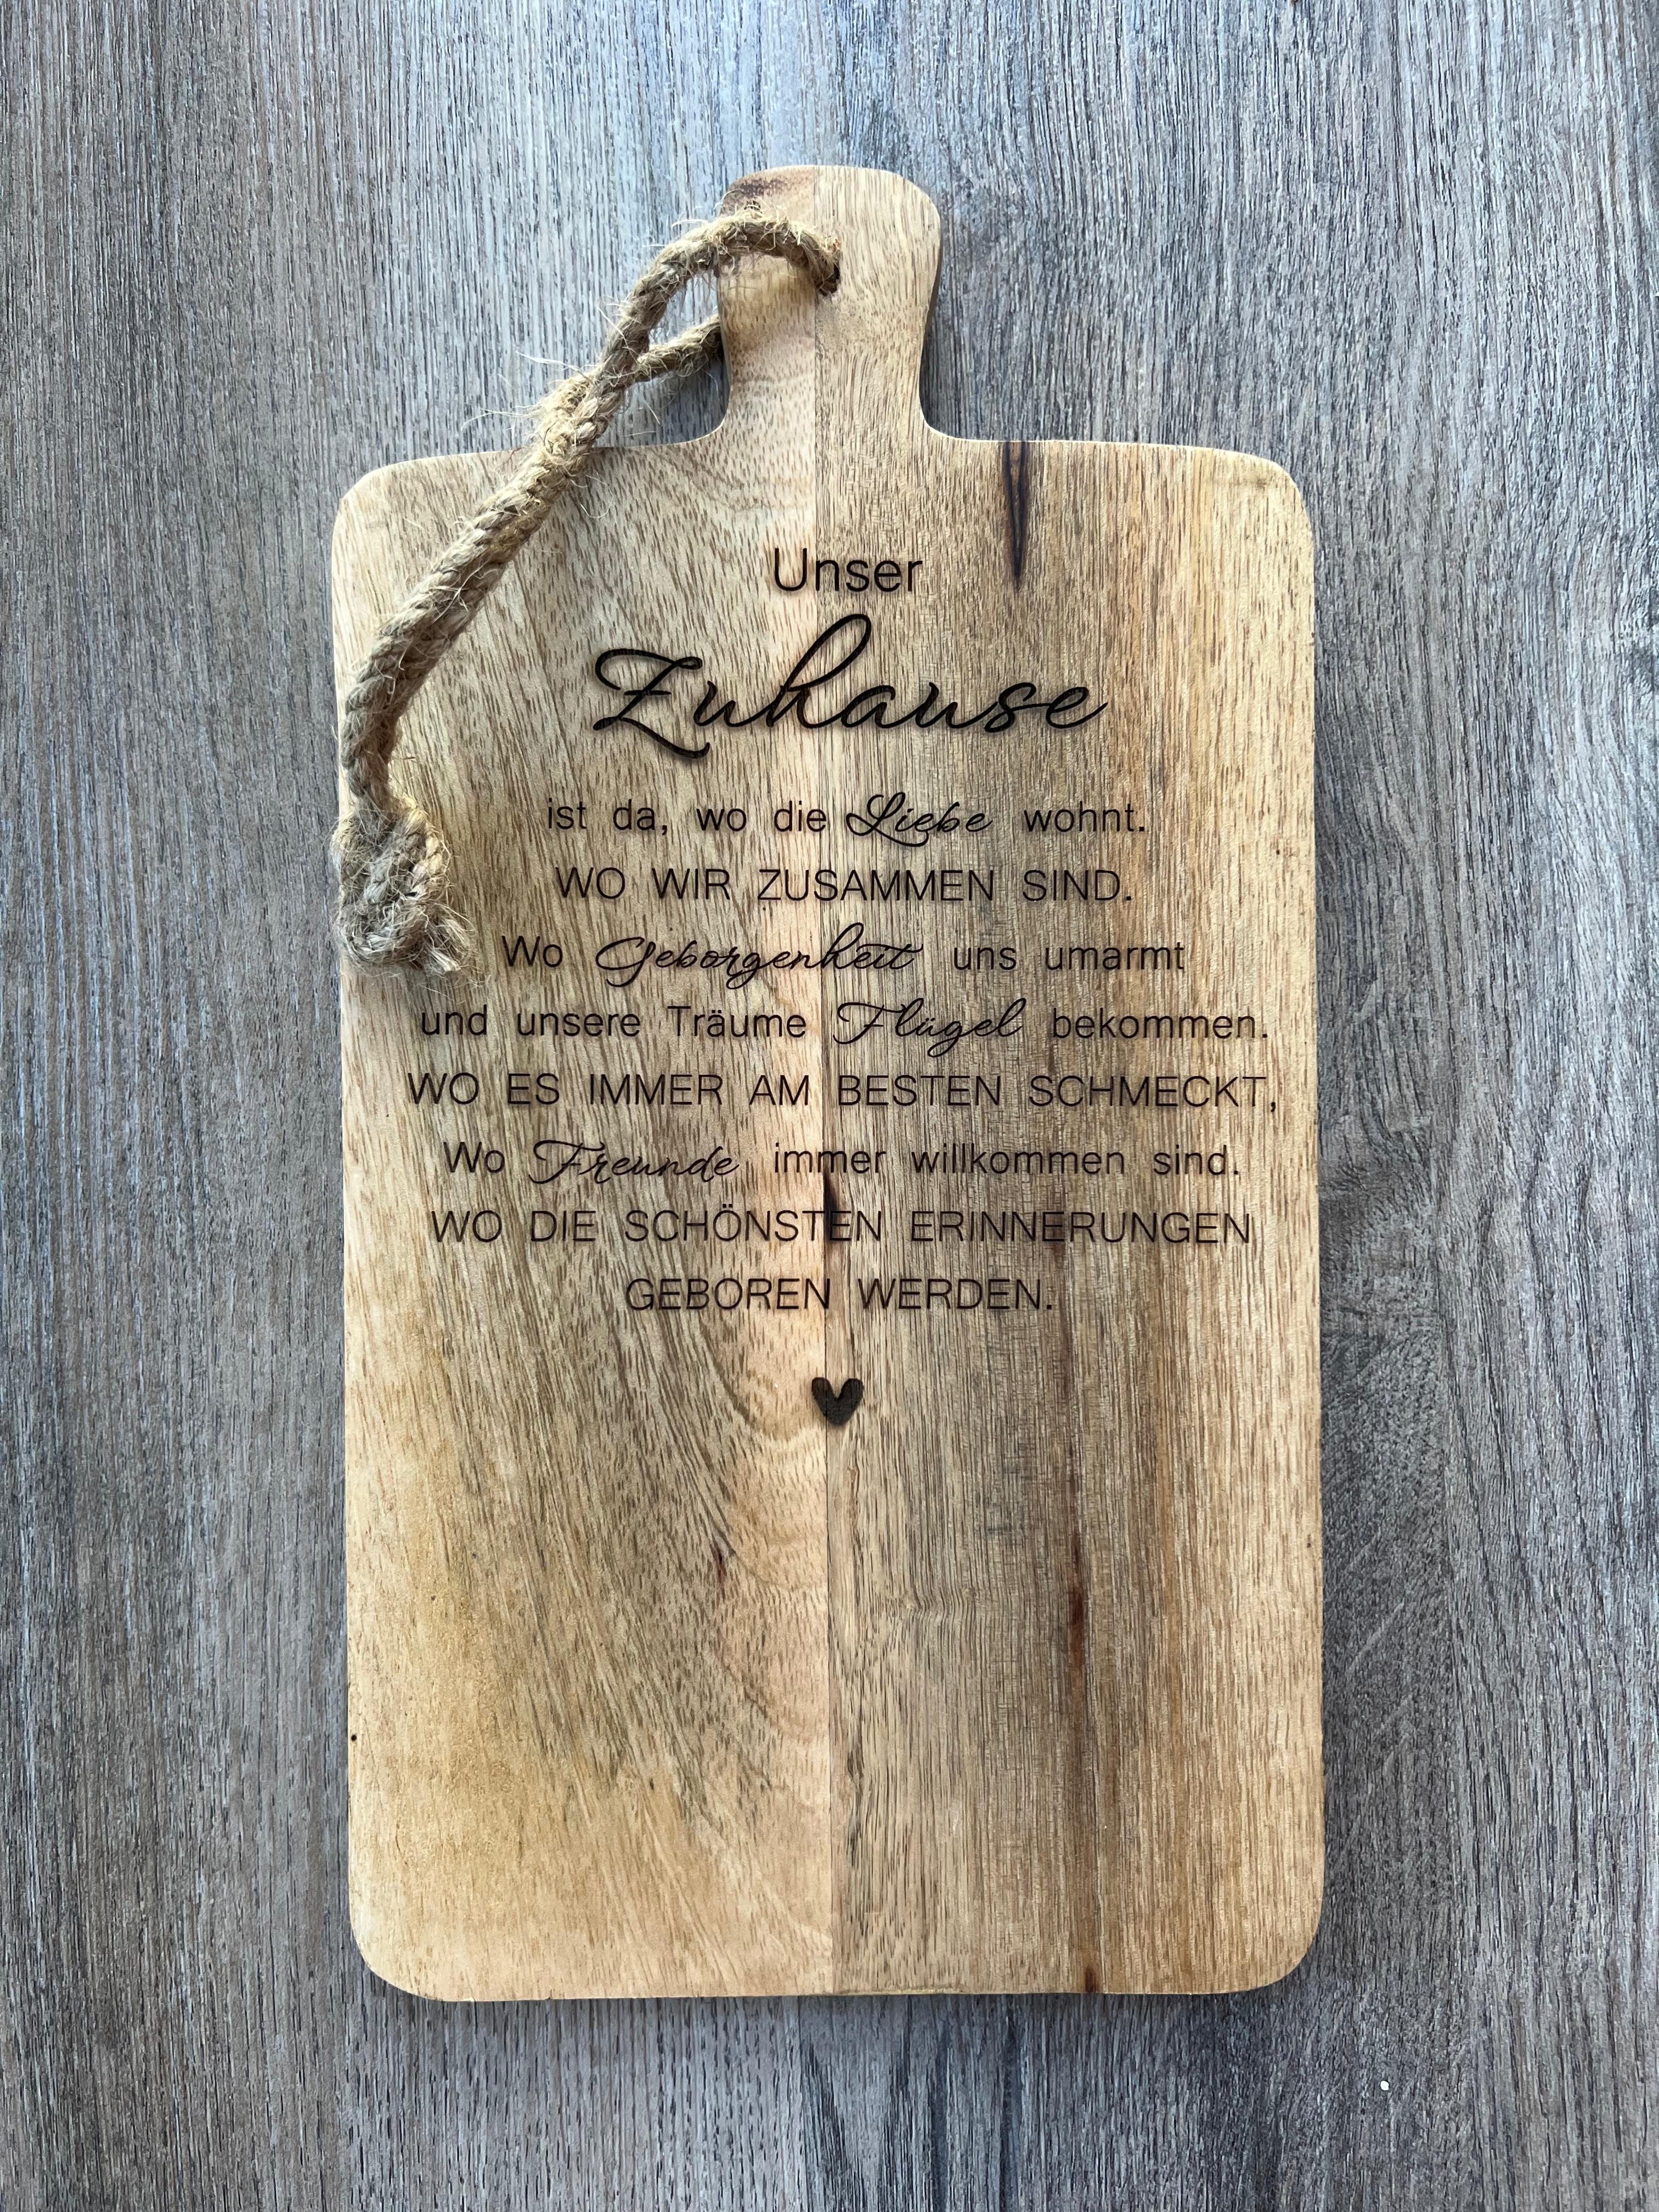 Unser
Zuhause
ist da, wo die Liebe wohnt.
WO WIR ZUSAMMEN SIND.
Wo Geborgenheit uns umarmt
und unsere Träume Flügel bekommen.
WO ES IMMER AM BESTEN SCHMECKT,
Wo Freunde immer willkommen sind.
WO DIE SCHÖNSTEN ERINNERUNGEN
GEBOREN WERDEN.